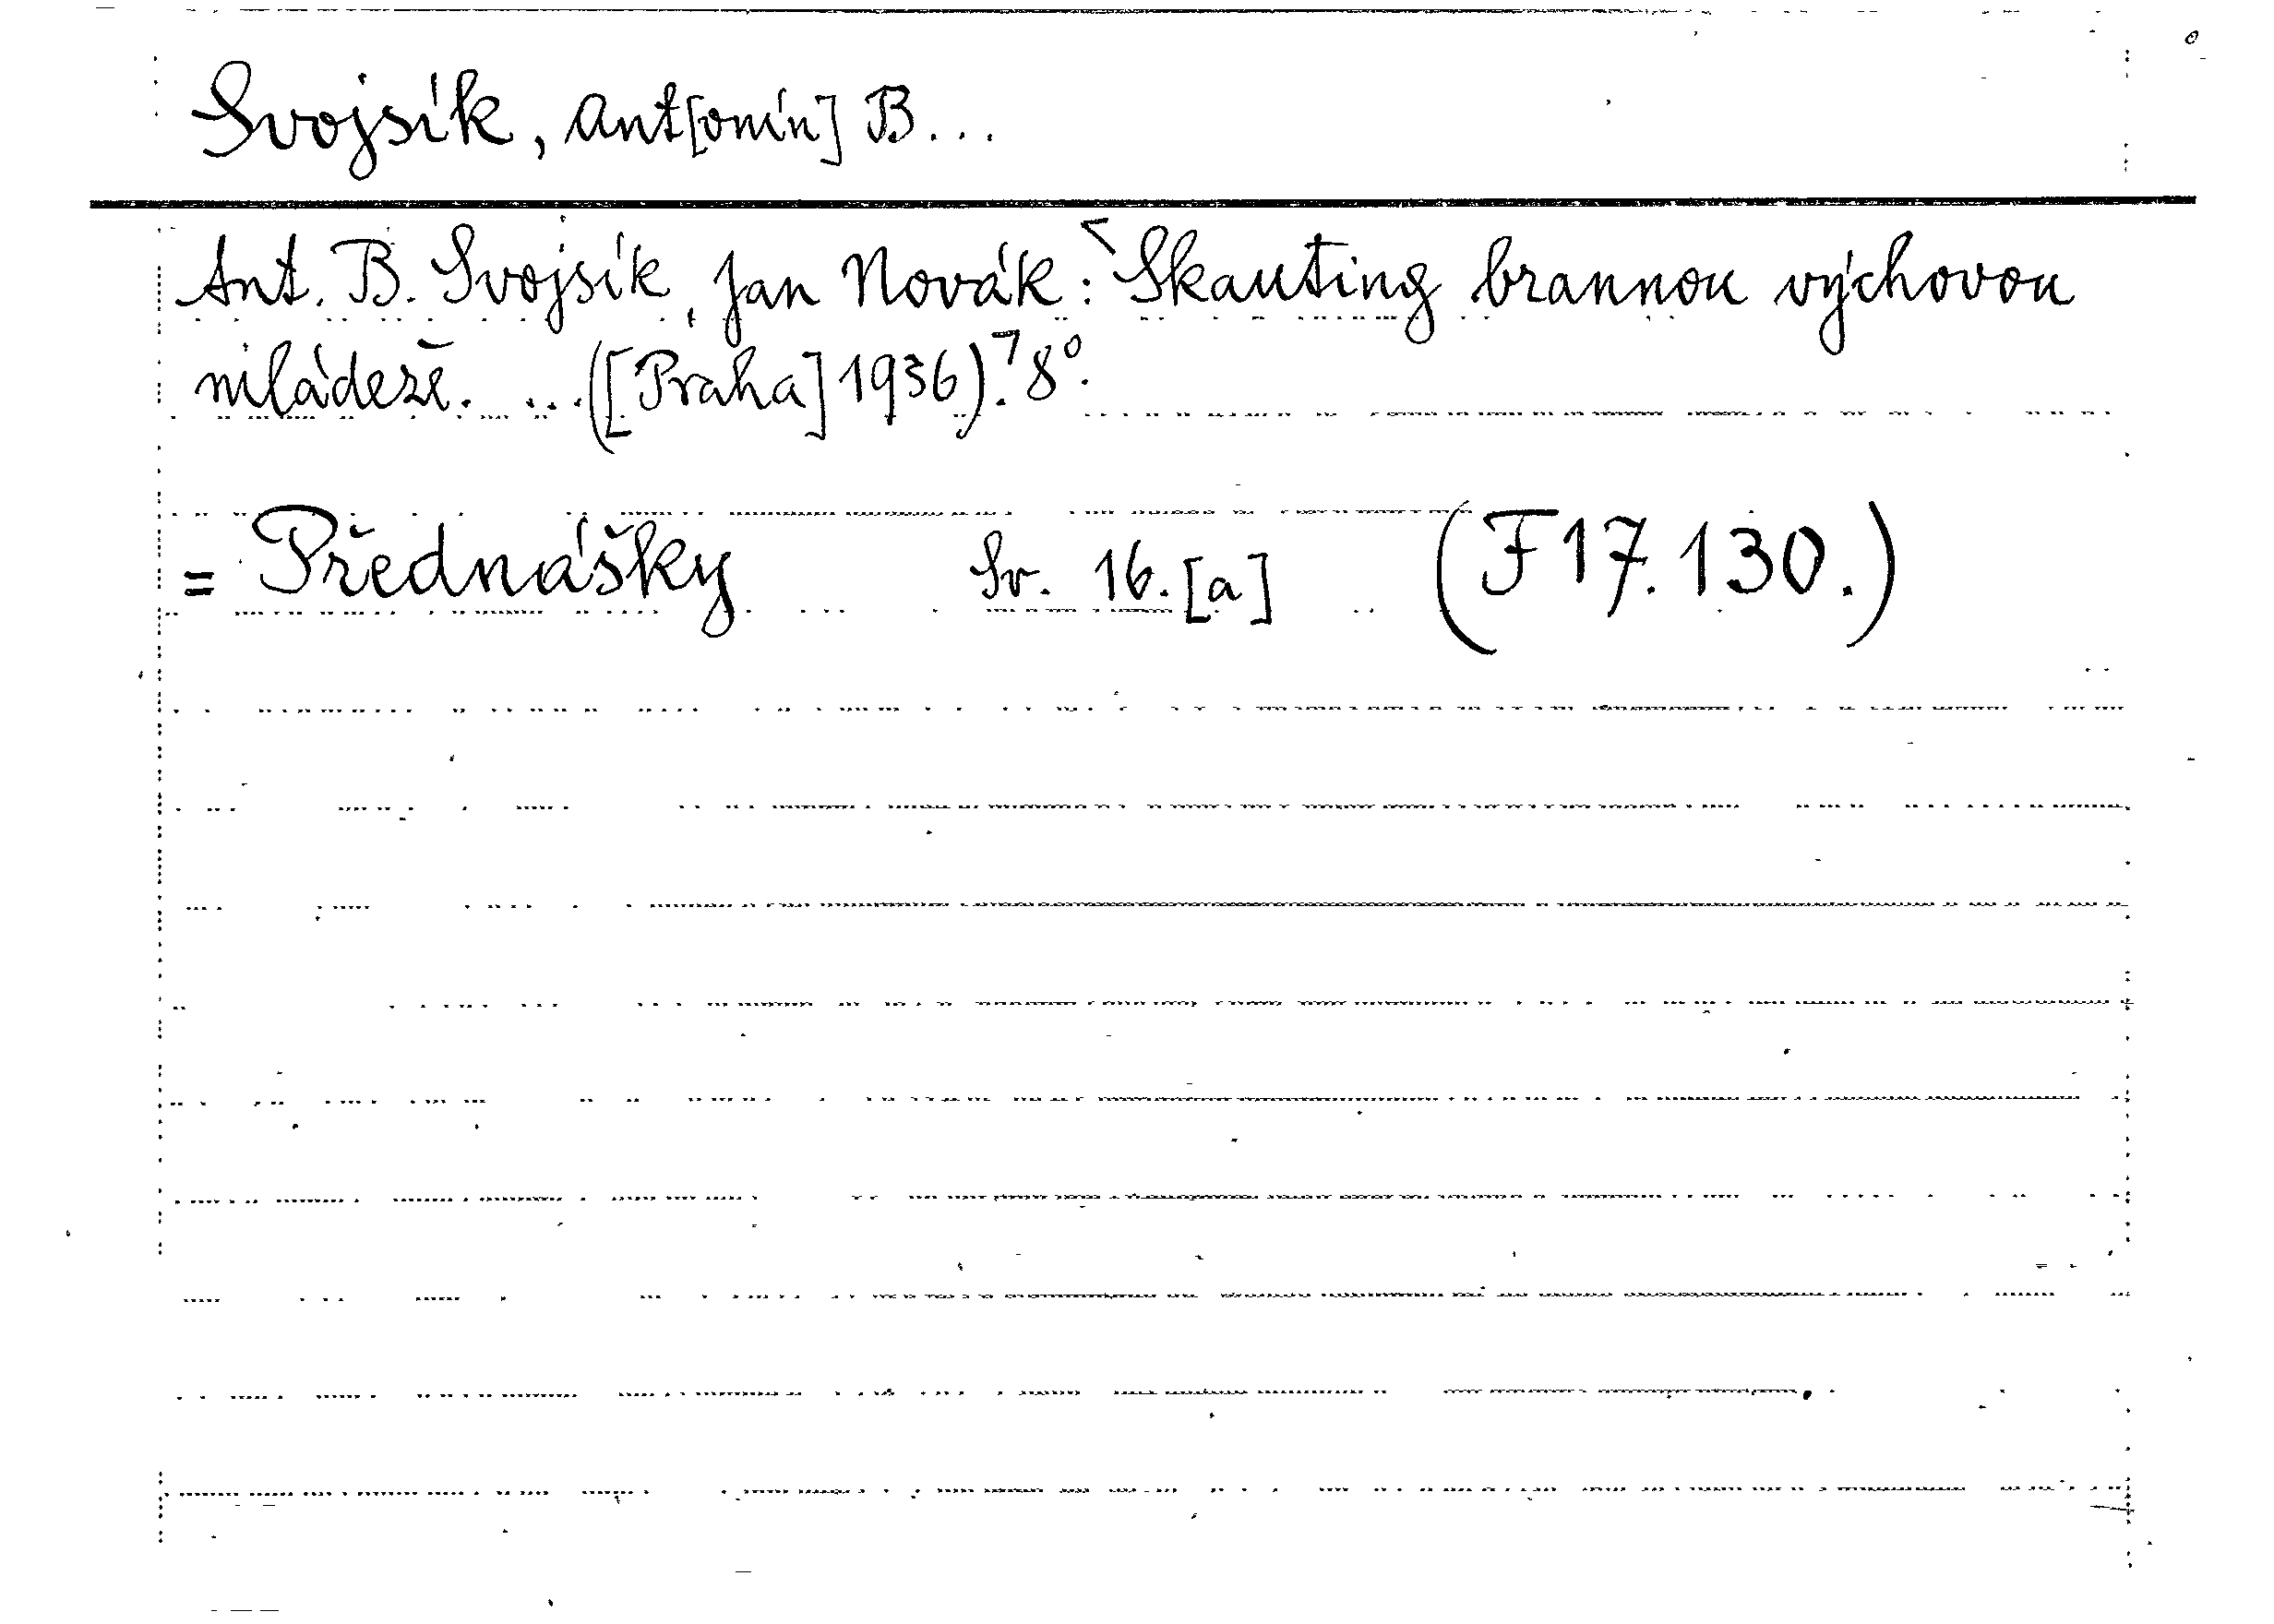 Svojsík, Ant[onín] B...
Ant. B. Svojsík, Jan Novák: ⌜Skauting brannou výchovou
mládeže. ...([Praha] 1936).⌝ 8°.
= Přednášky Sv. 16.[a] (F 17.130.)